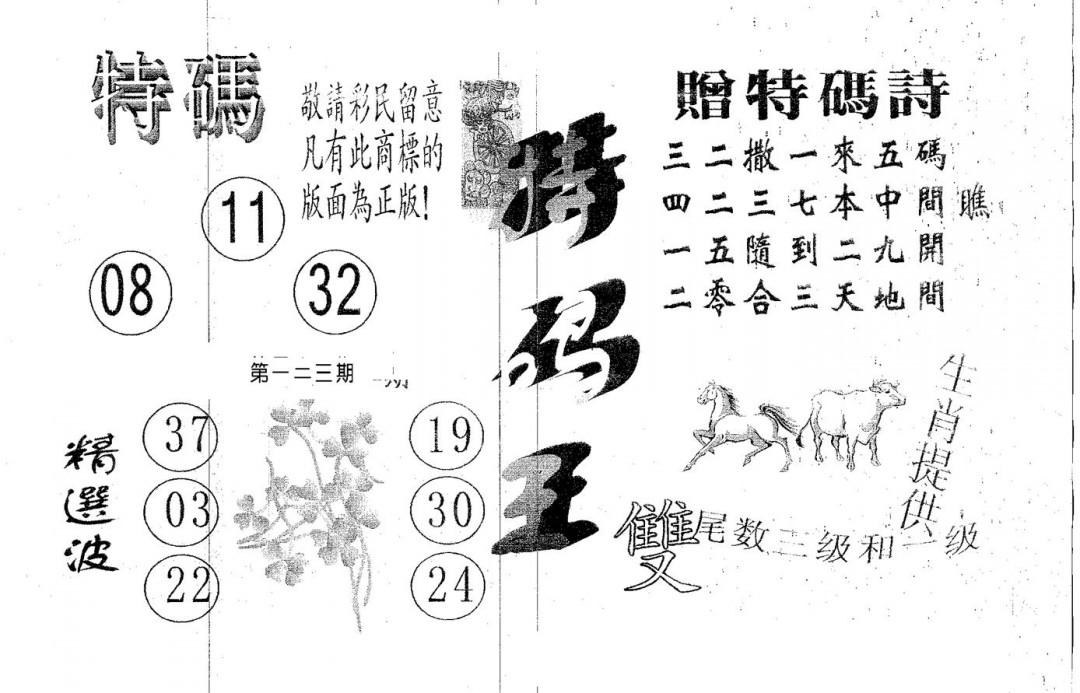 特碼
敬請彩民留意
凡有此商標的
版面為正版!
11
08
32
第一二三期
精選波
37
03
22
19
30
24
特码王
贈特碼詩
三二撒一來五碼
四二三七本中間瞧
一五隨到二九開
二零合三天地間
生肖提供
雙尾数二级和一级